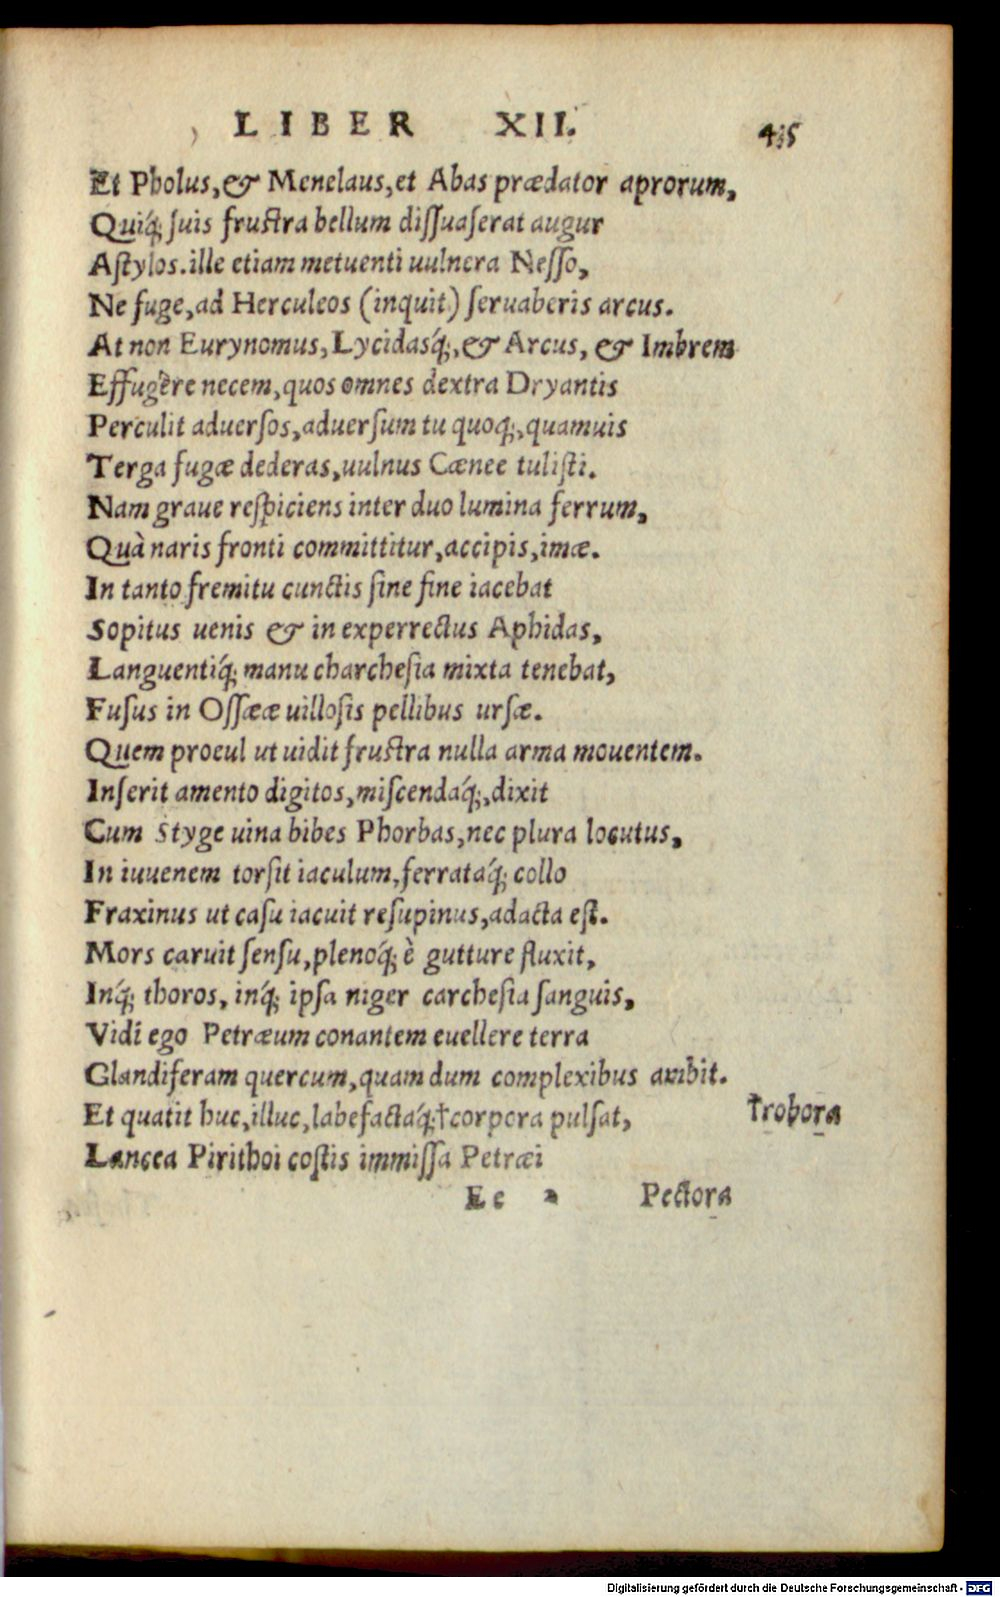 LIBER XII. 435
Et Pholus, & Menelaus, et Abas prædator aprorum,
Quiq́; ſuis fruſtra bellum diſſuaſerat augur
Aſtylos. ille etiam metuenti uulnera Neſſo,
Ne fuge, ad Herculeos (inquit) ſeruaberis arcus.
At non Eurynomus, Lycidasq́;, & Arcus, & Imbrem
Effugêre necem, quos omnes dextra Dryantis
Perculit aduerſos, aduerſum tu quoq;, quamuis
Terga fugæ dederas, uulnus Cænee tuliſti.
Nam graue reſpiciens inter duo lumina ferrum,
Quà naris fronti committitur, accipis, imæ.
In tanto fremitu cunctis ſine fine iacebat
Sopitus uenis & in experrectus Aphidas,
Languentiq́; manu charcheſia mixta tenebat,
Fuſus in Oſſææ uilloſis pellibus urſæ.
Quem procul ut uidit fruſtra nulla arma mouentem.
Inſerit amento digitos, miſcendaq́;, dixit
Cum Styge uina bibes Phorbas, nec plura locutus,
In iuuenem torſit iaculum, ferrataq́; collo
Fraxinus ut caſu iacuit reſupinus, adacta eſt.
Mors caruit ſenſu, plenoq́; è gutture fluxit,
Inq́; thoros, inq́; ipſa niger carcheſia ſanguis,
Vidi ego Petræum conantem euellere terra
Glandiferam quercum, quam dum complexibus ambit.
Et quatit huc, illuc, labefactaq́; †corpora pulſat, †robora
Lancea Pirithoi coſtis immiſſa Petræi
Ee 2 Pectora
Digitalisierung gefördert durch die Deutsche Forschungsgemeinschaft - DFG